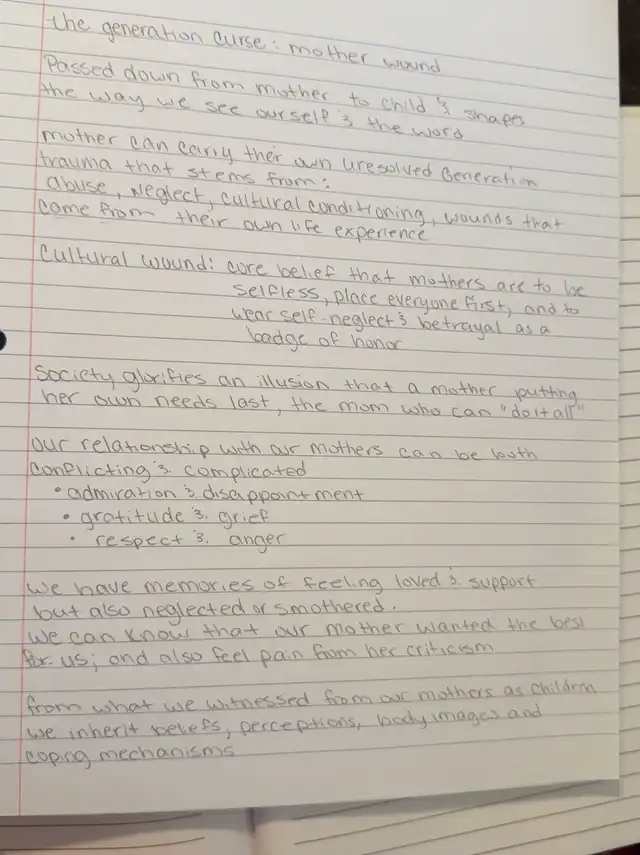 the generation curse: mother wound
Passed down from mother to child & shapes
the way we see ourself & the word
mother can carry their own uresolved Generation
trauma that stems from:
abuse, neglect, cultural conditioning, wounds that
come from their own life experience
Cultural wound: core belief that mothers are to be
selfless, place everyone first, and to
wear self-neglect & betrayal as a
badge of honor
Society glorifies an illusion that a mother putting
her own needs last, the mom who can "do it all"
our relationship with our mothers can be both
conflicting & complicated
• admiration & disappointment
• gratitude & grief
• respect & anger
we have memories of feeling loved & support
but also neglected or smothered.
We can know that our mother wanted the best
for us; and also feel pain from her criticism
from what we witnessed from our mothers as children
we inherit beliefs, perceptions, body images and
coping mechanisms